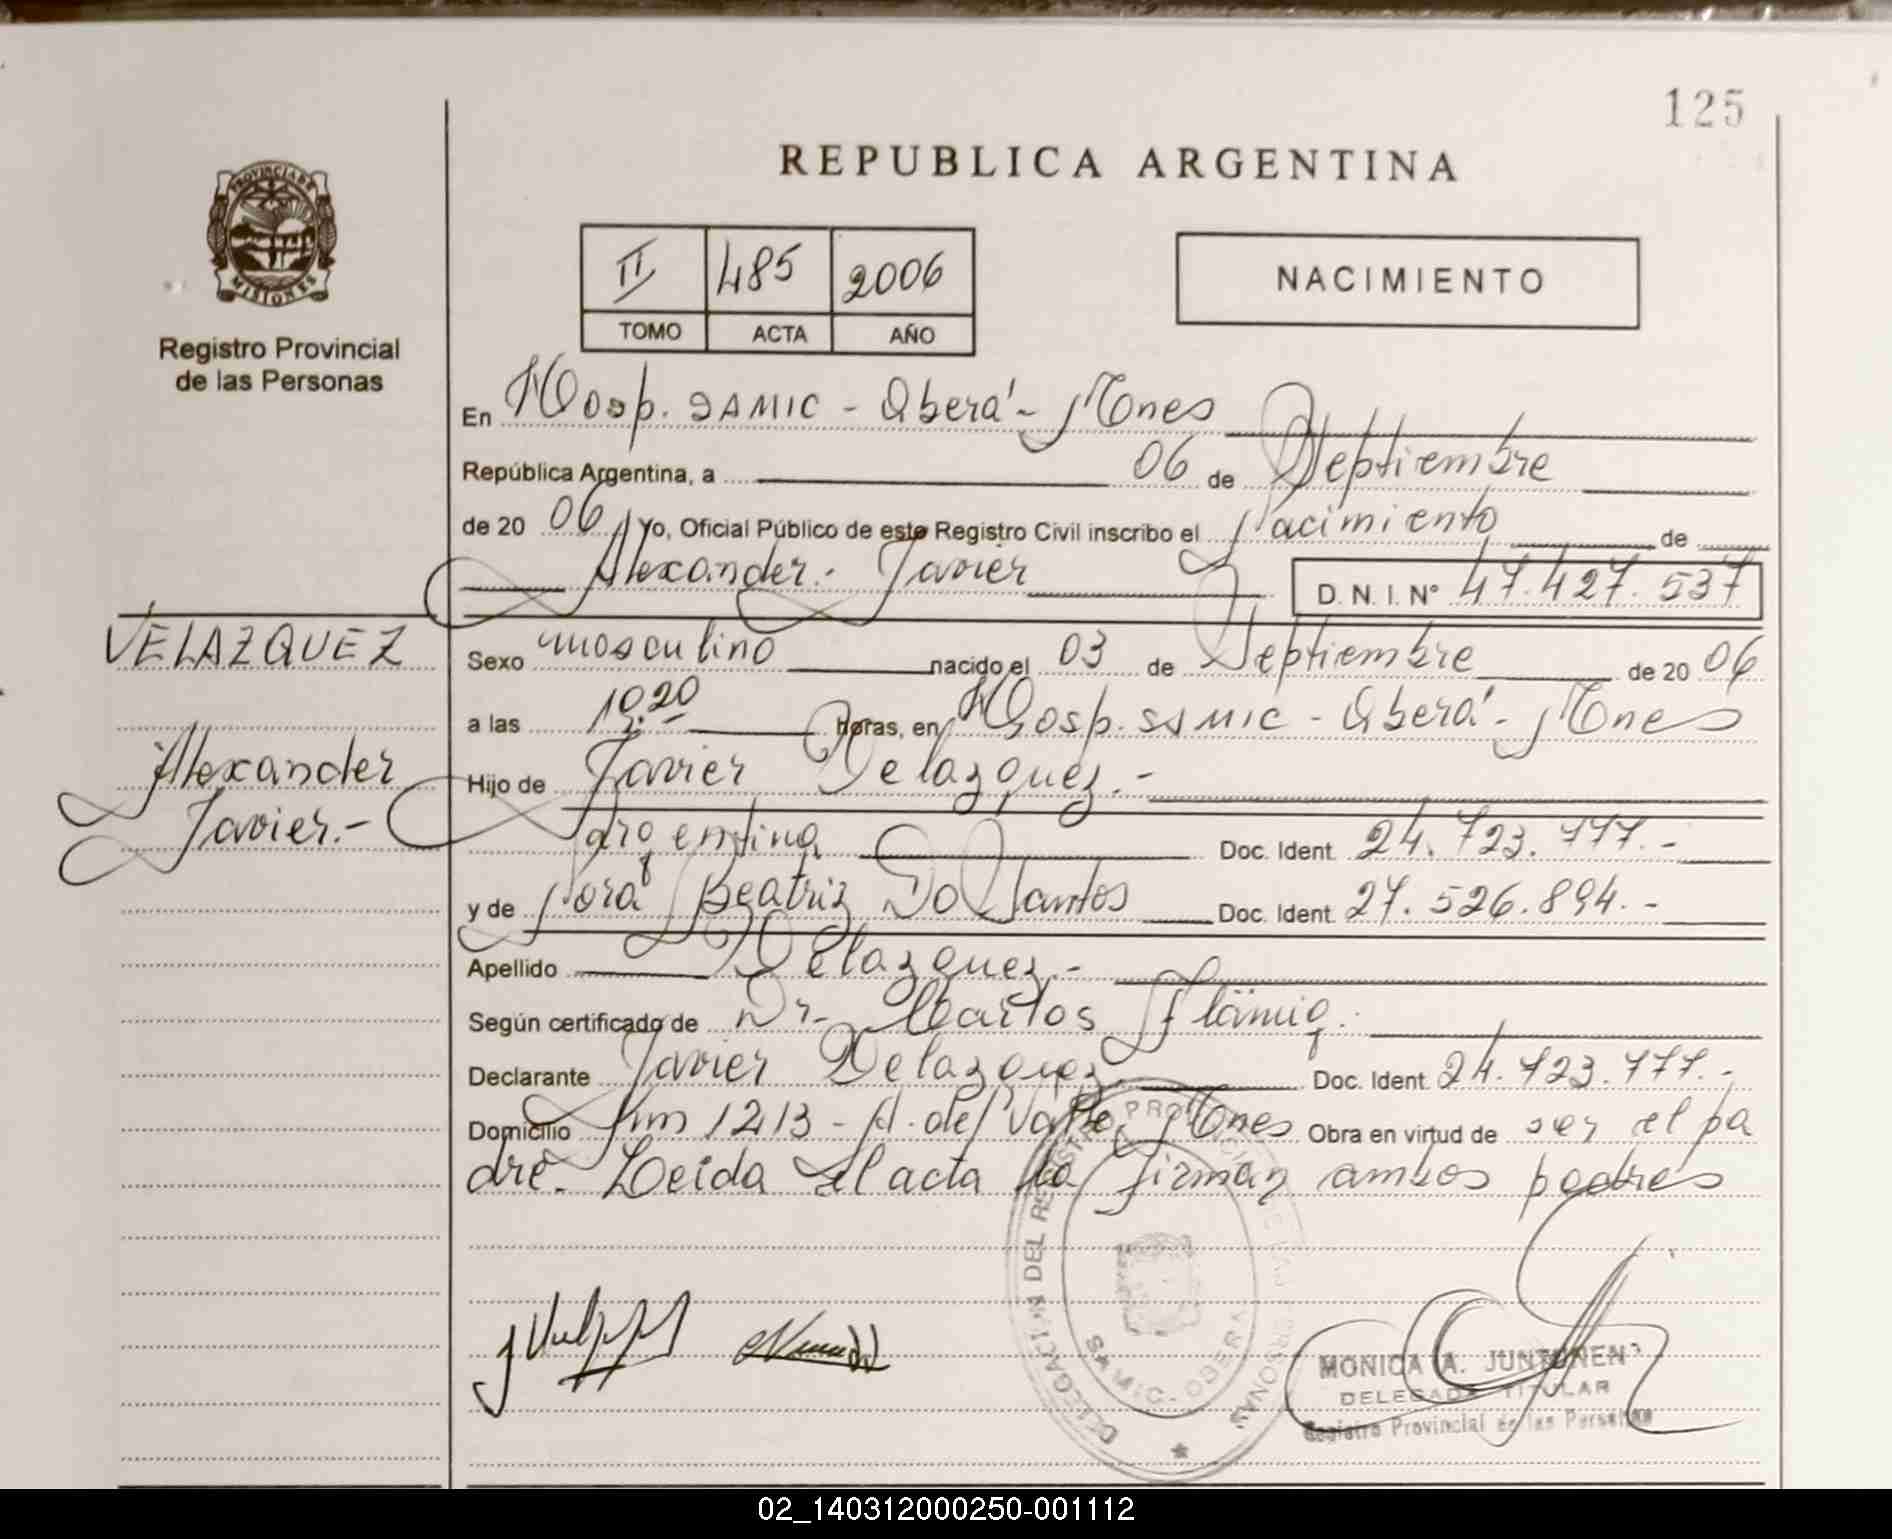 125
REPUBLICA ARGENTINA
PROVINCIA DE
MISIONES
Registro Provincial
de las Personas
II 485 2006
TOMO ACTA AÑO
NACIMIENTO
En Hosp. SAMIC - Oberá - Mnes
República Argentina, a 06 de Septiembre
de 20 06 Yo, Oficial Público de este Registro Civil inscribo el Nacimiento de
Alexander.- Javier D.N.I.Nº 47.427.537
VELAZQUEZ
Alexander
Javier.-
Sexo masculino nacido el 03 de Septiembre de 20 06
a las horas, en Hosp. SAMIC - Oberá - Mnes
Hijo de Javier Velazquez.-
argentina Doc. Ident. 24.723.777.-
y de Nora Beatriz Do Santos Doc. Ident. 27.526.894.-
Apellido Velazquez.-
Según certificado de Dr. Carlos Flämig.
Declarante Javier Velazquez Doc. Ident. 24.723.777.-
Domicilio Km 1213 - A. del Valle, Mnes Obra en virtud de ser el pa
dre. Leida el acta la firman ambos padres
DELEGACION DEL REGISTRO PROVINCIAL DE LAS PERSONAS
SAMIC - OBERA
MONICA A. JUNTUNEN
DELEGADA TITULAR
Registro Provincial de las Personas
02_140312000250-001112